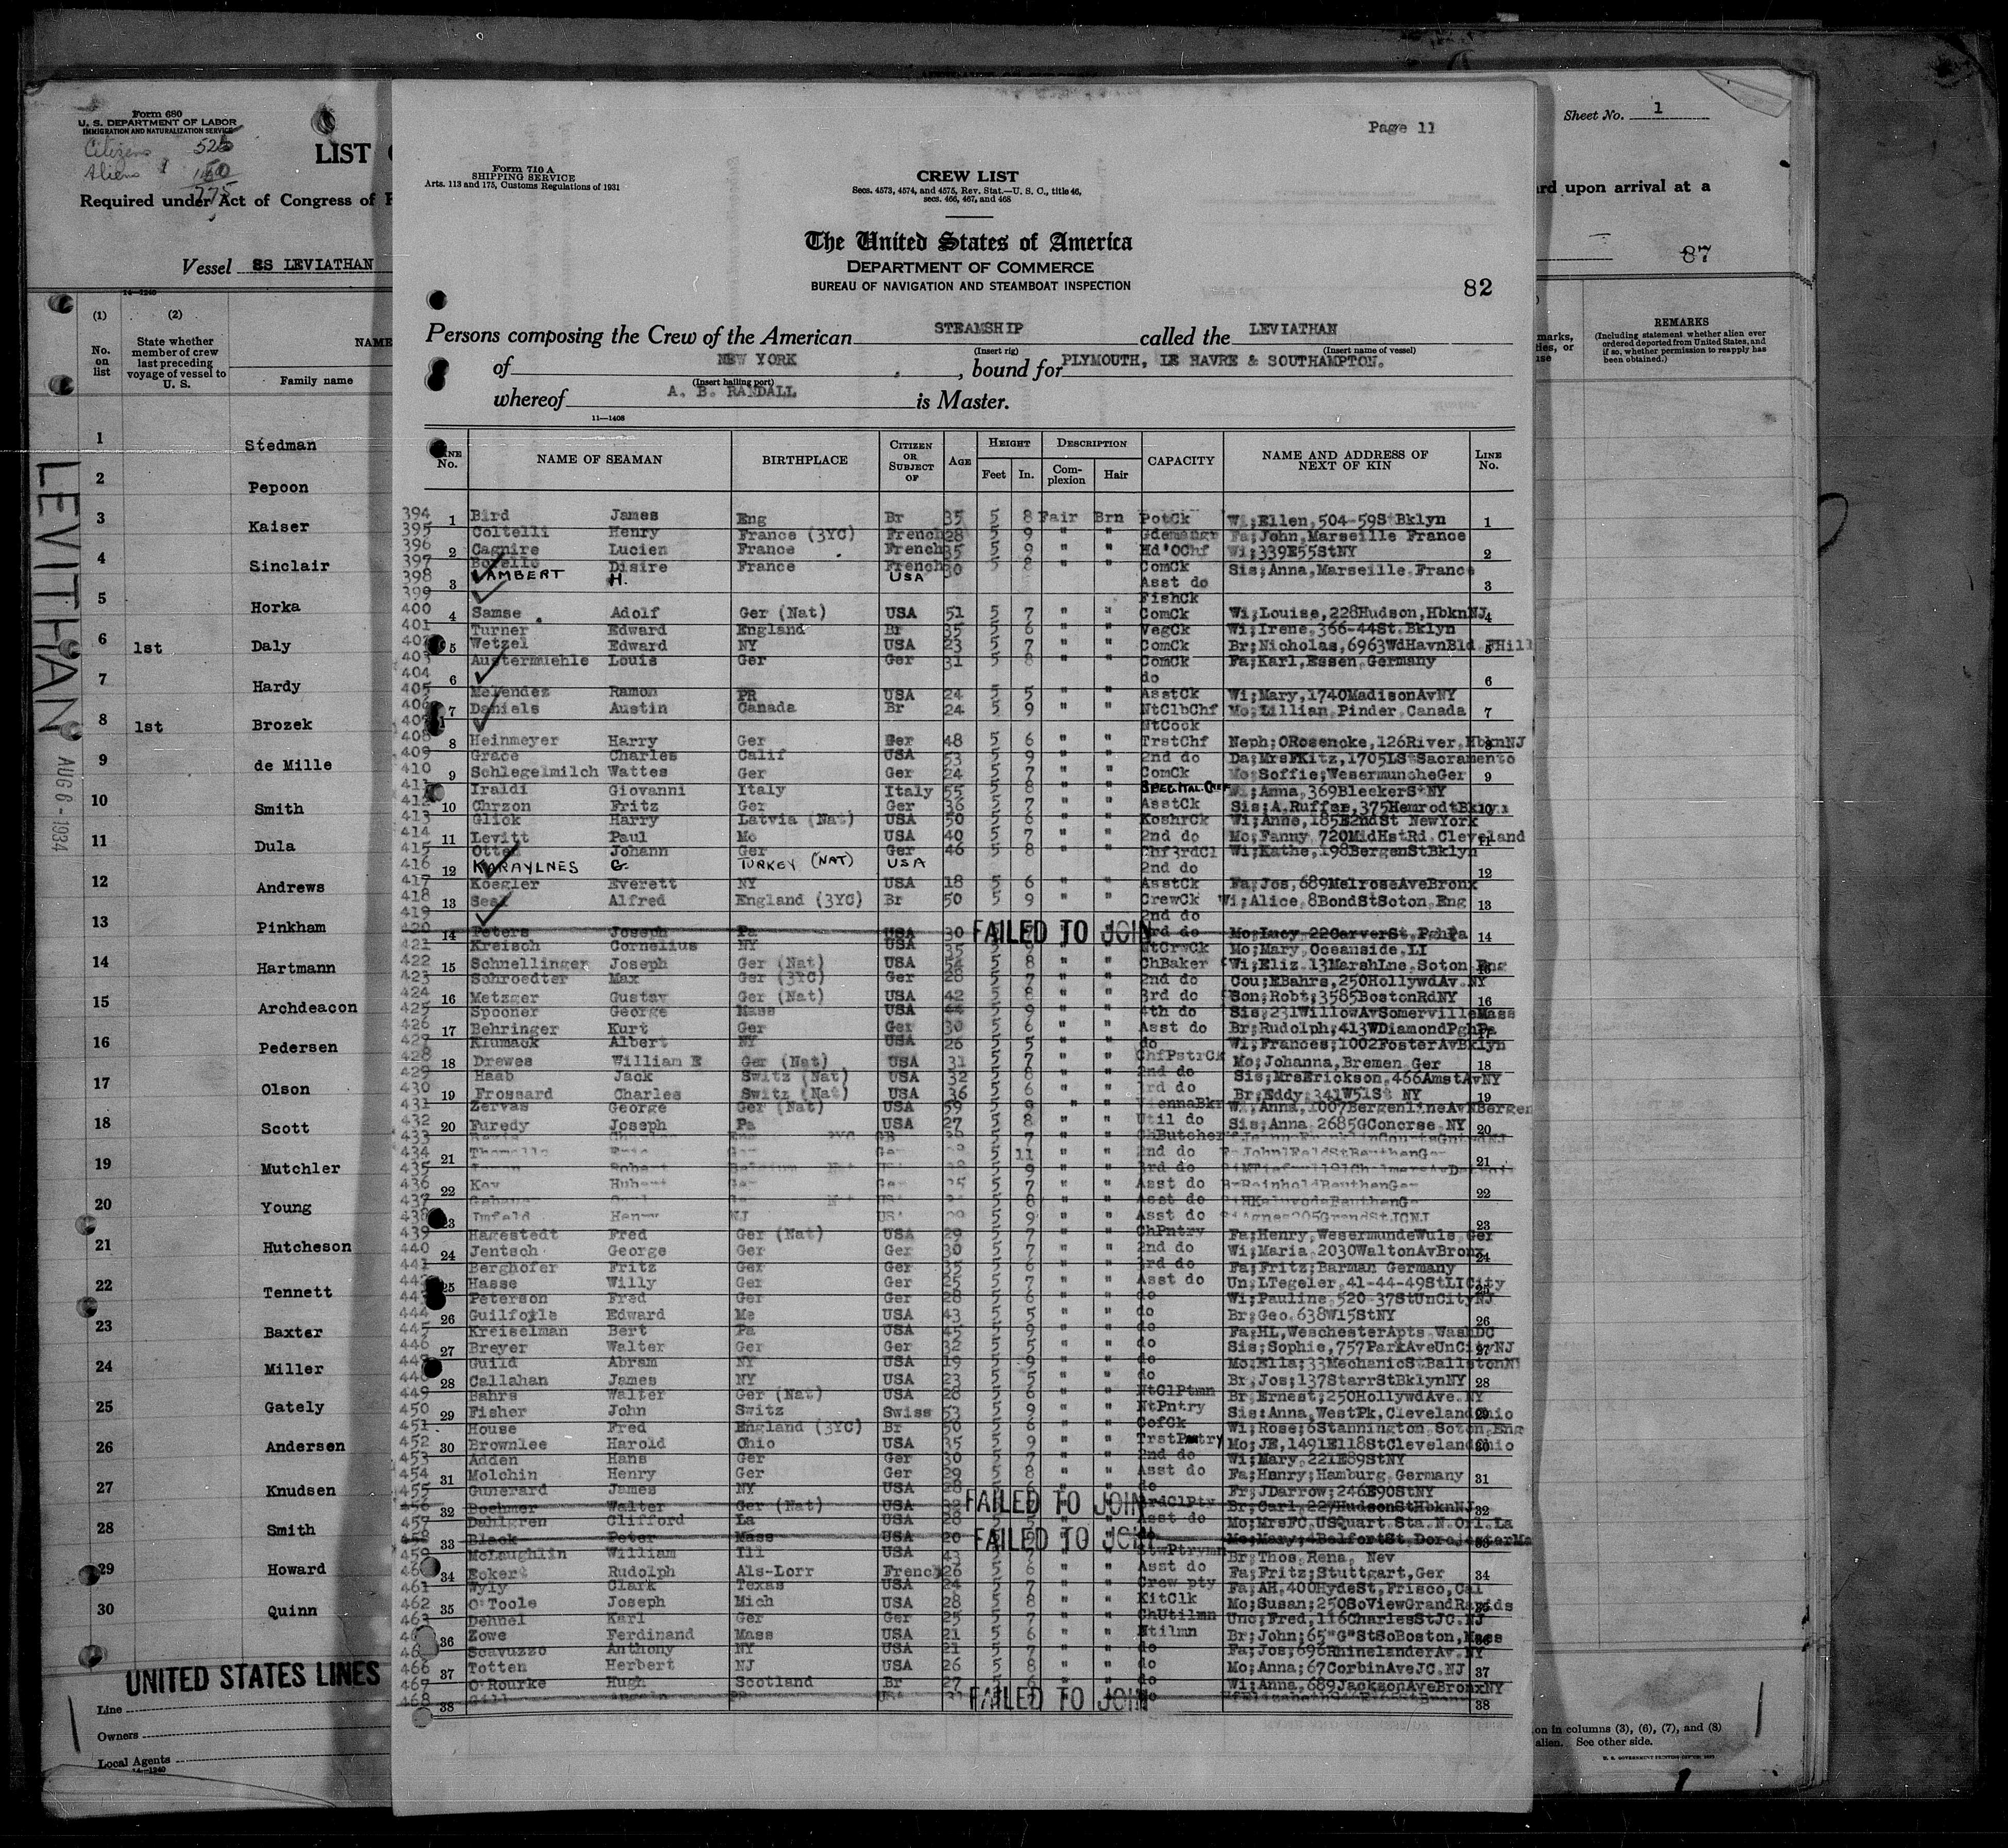 Form 680
U. S. DEPARTMENT OF LABOR
IMMIGRATION AND NATURALIZATION SERVICE
Citizens 525
Aliens
775
LIST
Required under Act of Congress of
Vessel SS LEVIATHAN
14—1240
(1) (2)
No. on list
State whether member of crew last preceding voyage of vessel to U. S.
NAME
Family name
1 Stedman
2 Pepoon
3 Kaiser
4 Sinclair
5 Horka
6 1st Daly
7 Hardy
8 1st Brozek
9 de Mille
10 Smith
11 Dula
12 Andrews
13 Pinkham
14 Hartmann
15 Archdeacon
16 Pedersen
17 Olson
18 Scott
19 Mutchler
20 Young
21 Hutcheson
22 Tennett
23 Baxter
24 Miller
25 Gately
26 Andersen
27 Knudsen
28 Smith
29 Howard
30 Quinn
LEVITHAN
AUG 6 - 1934
UNITED STATES LINES
Line
Owners
Local Agents
14—1240
Page 11
Form 710 A
SHIPPING SERVICE
Arts. 113 and 175, Customs Regulations of 1931
CREW LIST
Secs. 4573, 4574, and 4575, Rev. Stat.—U. S. C., title 46,
secs. 466, 467, and 468
The United States of America
DEPARTMENT OF COMMERCE
BUREAU OF NAVIGATION AND STEAMBOAT INSPECTION
82
Persons composing the Crew of the American STEAMSHIP called the LEVIATHAN
(Insert rig) (Insert name of vessel)
of NEW YORK, bound for PLYMOUTH, LE HAVRE & SOUTHAMPTON.
(Insert hailing port)
whereof A. B. RANDALL is Master.
11—1408
LINE No. NAME OF SEAMAN BIRTHPLACE CITIZEN OR SUBJECT OF AGE HEIGHT Feet In. DESCRIPTION Complexion Hair CAPACITY NAME AND ADDRESS OF NEXT OF KIN LINE No.
394 1 Bird James Eng Br 35 5 8 Fair Brn PotCk Wi;Ellen,504-59St Bklyn 1
395 Coltelli Henry France (3YC) French 28 5 9 " " Fa;John,Marseille France
396 2 Cagnire Lucien France French 35 5 9 " " Hd'OChf Wi;339E55StNY 2
397 Disire France French 30 5 8 " " ComCk Sis;Anna,Marseille France
398 3 LAMBERT H. USA Asst do 3
399 FishCk
400 4 Samse Adolf Ger (Nat) USA 51 5 7 " " ComCk Wi;Louise,228Hudson,HbknNJ 4
401 Turner Edward England Br 35 5 6 " " VegCk Wi;Irene,366-44St Bklyn
402 5 Wetzel Edward NY USA 23 5 7 " " ComCk Br;Nicholas,6963WdHavnBld FHill
403 Austermuehle Louis Ger Ger 31 5 8 " " ComCk Fa;Karl,Essen Germany
404 6 do 6
405 Melendez Ramon PR USA 24 5 5 " " AsstCk Wi;Mary,1740MadisonAvNY
406 7 Daniels Austin Canada Br 24 5 9 " " NtClbChf Mo;Lillian Pinder Canada 7
407 NtCook
408 8 Heinmeyer Harry Ger Ger 48 5 6 " " TrstChf Neph;ORosencke,126River,HbknNJ 8
409 Grace Charles Calif USA 53 5 9 " " 2nd do Da;MrsFKitz,1705LStSacramento
410 9 Schlegelmilch Wattes Ger Ger 24 5 7 " " ComCk Mo;Soffie;WesermuncheGer 9
411 Iraldi Giovanni Italy Italy 55 5 8 " " Wi;Anna,369BleekerStNY
412 10 Chrzon Fritz Ger Ger 36 5 7 " " AsstCk Sis;A.Ruffer,375HemrodtBklyn 10
413 Glick Harry Latvia (Nat) USA 50 5 6 " " KoshrCk Wi;Anne,185E2ndSt NewYork
414 11 Levitt Paul Mo USA 40 5 7 " " 2nd do Mo;Fanny 720MidHstRd Cleveland 11
415 Otte Johann Ger Ger 46 5 8 " " Chf3rdCl Wi;Kathe,198BergenStBklyn
416 12 KARAYLNES G. TURKEY (NAT) USA 2nd do 12
417 Koegler Everett NY USA 18 5 6 " " AsstCk Fa;Jos,689MelroseAveBronx
418 13 Seal Alfred England (3YC) Br 50 5 9 " " CrewCk Wi;Alice,8BondStSoton Eng 13
419 2nd do
420 14 Peters Joseph Pa USA 30 FAILED TO JOIN 3rd do Mo;Lucy 22CarverSt PghPa 14
421 Kreisch Cornelius NY USA 35 5 9 " " NtCrwCk Mo;Mary Oceanside LI
422 15 Schnellinger Joseph Ger (Nat) USA 54 5 8 " " ChBaker Wi;Eliz 13MarshLne Soton Eng 15
423 Schroedter Max Ger (3YC) Ger 28 5 7 " " 2nd do Cou;EBahrs,250HollywdAv NY
424 16 Metzger Gustav Ger (Nat) USA 42 5 8 " " 3rd do Son;Robt;3585BostonRdNY 16
425 Spooner George Mass USA 44 5 9 " " 4th do Sis;231WillowAvSomervilleMass
426 17 Behringer Kurt Ger Ger 30 5 6 " " Asst do Br;Rudolph;413WDiamondPghPa 17
427 Klumack Albert NY USA 26 5 5 " " do Wi;Frances;1002FosterAvBklyn
428 18 Drewes William E Ger (Nat) USA 31 5 7 " " ChfPstrCk Mo;Johanna,Bremen Ger 18
429 Haab Jack Switz (Nat) USA 32 5 8 " " 2nd do Sis;MrsErickson,466AmstAvNY
430 19 Frossard Charles Switz (Nat) USA 36 5 6 " " 3rd do Br;Eddy 341W51St NY 19
431 Zervas George Ger (Nat) USA 59 5 9 " " ViennaBkr Wi;Anna,1007BergenlineAvNBergen
432 20 Furedy Joseph Pa USA 27 5 8 " " Util do Sis;Anna 2685GConcrse NY 20
433 5 7 " " ChButcher
434 21 5 11 " " 2nd do 21
435 Robert Belgium 5 9 " " 3rd do
436 22 Kov Hubert Ger Ger 5 7 " " Asst do BrReinholdBeuthenGer 22
437 5 8 " " Asst do
438 23 Imfeld Henry NJ USA 5 9 " " Asst do 23
439 Hagestedt Fred Ger (Nat) USA 29 5 7 " " ChPntry Fa;Henry,WesermundeWuls Ger
440 24 Jentsch George Ger Ger 30 5 7 " " 2nd do Wi;Maria 2030WaltonAvBronx 24
441 Berghofer Fritz Ger Ger 35 5 6 " " 3rd do Fa;Fritz;Barman Germany
442 25 Hasse Willy Ger Ger 25 5 7 " " Asst do Un;LTegeler 41-44-49StLICity 25
443 Peterson Fred Ger Ger 28 5 6 " " do Wi;Pauline,520-37StUnCityNJ
444 26 Guilfoyle Edward Me USA 43 5 5 " " do Br;Geo.638W15StNY 26
445 Kreiselman Bert Pa USA 45 5 9 " " do Fa;HL,WeschesterApts WashDC
446 27 Breyer Walter Ger Ger 32 5 5 " " do Sis;Sophie,757ParkAveUnCityNJ 27
447 Guild Abram NY USA 19 5 9 " " do Mo;Ella;33MechanicStBallstonNY
448 28 Callahan James NY USA 23 5 5 " " do Br,Jos;137StarrStBklynNY 28
449 Bahrs Walter Ger (Nat) USA 28 5 6 " " NtClPtmn Br Ernest;250HollywdAve NY
450 29 Fisher John Switz Swiss 53 5 9 " " NtPntry Sis:Anna,WestPk,ClevelandOhio 29
451 House Fred England (3YC) Br 50 5 6 " " CofCk Wi;Rose;6Stannington Soton Eng
452 30 Brownlee Harold Ohio USA 35 5 9 " " TrstPntry Mo;JE,1491E118StClevelandOhio 30
453 Adden Hans Ger Ger 30 5 7 " " 2nd do Wi;Mary 221E89StNY
454 31 Molchin Henry Ger Ger 29 5 8 " " Asst do Fa;Henry;Hamburg Germany 31
455 Gunerard James NY USA 28 do Fr;JDarrow;246E90StNY
456 32 Boehmer Walter Ger (Nat) USA 32 FAILED TO JOIN 3rdClPty Br;Carl,227HudsonStHbknNJ 32
457 Dahlgren Clifford La USA 28 5 5 " " Asst do Mo;MrsFC,USQuart Sta N.Orl La
458 33 Black Peter Mass USA 20 FAILED TO JOIN do Mo;Mary;4BelfortSt 33
459 McLaughlin William Ill USA 43 5 7 " " StwPtrymn Br;Thos Rena, Nev
34 Eckert Rudolph Als-Lorr French 26 5 6 " " Asst do Fa;Fritz;Stuttgart,Ger 34
461 Wyly Clark Texas USA 24 5 7 " " Crew pty Fa;AH,400HydeSt,Frisco,Cal
462 35 O'Toole Joseph Mich USA 28 5 8 " " KitClk Mo;Susan;250SoViewGrandRapids 35
463 Dennel Karl Ger Ger 25 5 7 " " ChUtilmn Unc;Fred,116CharlesStJC.NJ
36 Zowe Ferdinand Mass USA 21 5 6 " " Utilmn Br;John;65"G"StSoBoston,Mass 36
Scavuzzo Anthony NY USA 21 5 7 " " do Fa;Jos;696RhinelanderAv.NY
466 37 Totten Herbert NJ USA 26 5 8 " " do Mo;Anna;67CorbinAveJC.NJ 37
467 O'Rourke Hugh Scotland Br 27 5 6 " " do Wi;Anna,689JacksonAveBronxNY
468 38 Gill FAILED TO JOIN do 38
Sheet No. 1
rd upon arrival at a
87
REMARKS
(Including statement whether alien ever ordered deported from United States, and if so, whether permission to reapply has been obtained.)
on in columns (3), (6), (7), and (8)
alien. See other side.